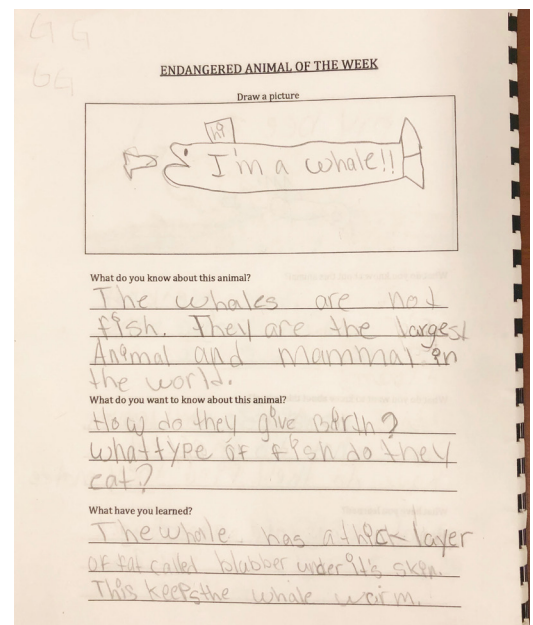 G G
GG
ENDANGERED ANIMAL OF THE WEEK
Draw a picture
hi
I'm a whale!!
What do you know about this animal?
The whales are not
fish. They are the largest
Animal and mammal in
the world.
What do you want to know about this animal?
How do they give Birth?
what type of fish do they
eat?
What have you learned?
The whale has a thick layer
of fat called blubber under it's skin.
This keeps the whale warm.